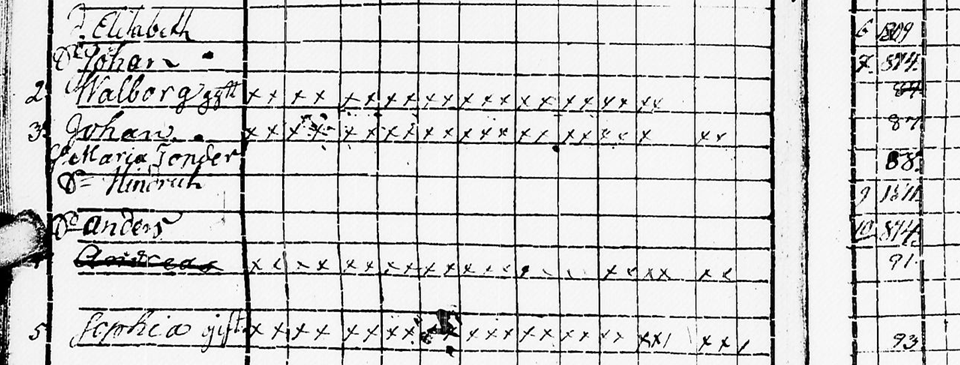 D. Elisabeth 6 1809
Dr Johan 7 874
2 Walborg gift x x x x x x x x x x x x x x x x x x x x 84
3 Johan x x x x x x x x x x x x x x x x x x x x x x 87
Maria 88
Dr Hindrich 9 1811
Dr anders 10 874
Andreas x x x x x x x x x x x x x x x x x x 91
5 Sophia gift x x x x x x x x x x x x x x x x x x x x x x 93